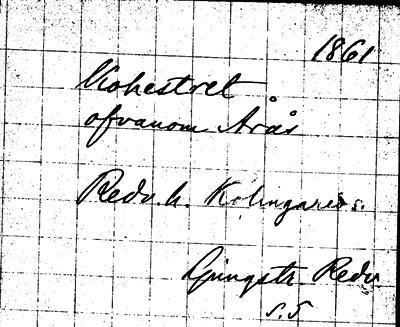 1861
Kohestret
ofvanom Årås
Redv. h. Kölingareds s.
Ljungstr. Redv
s. 5